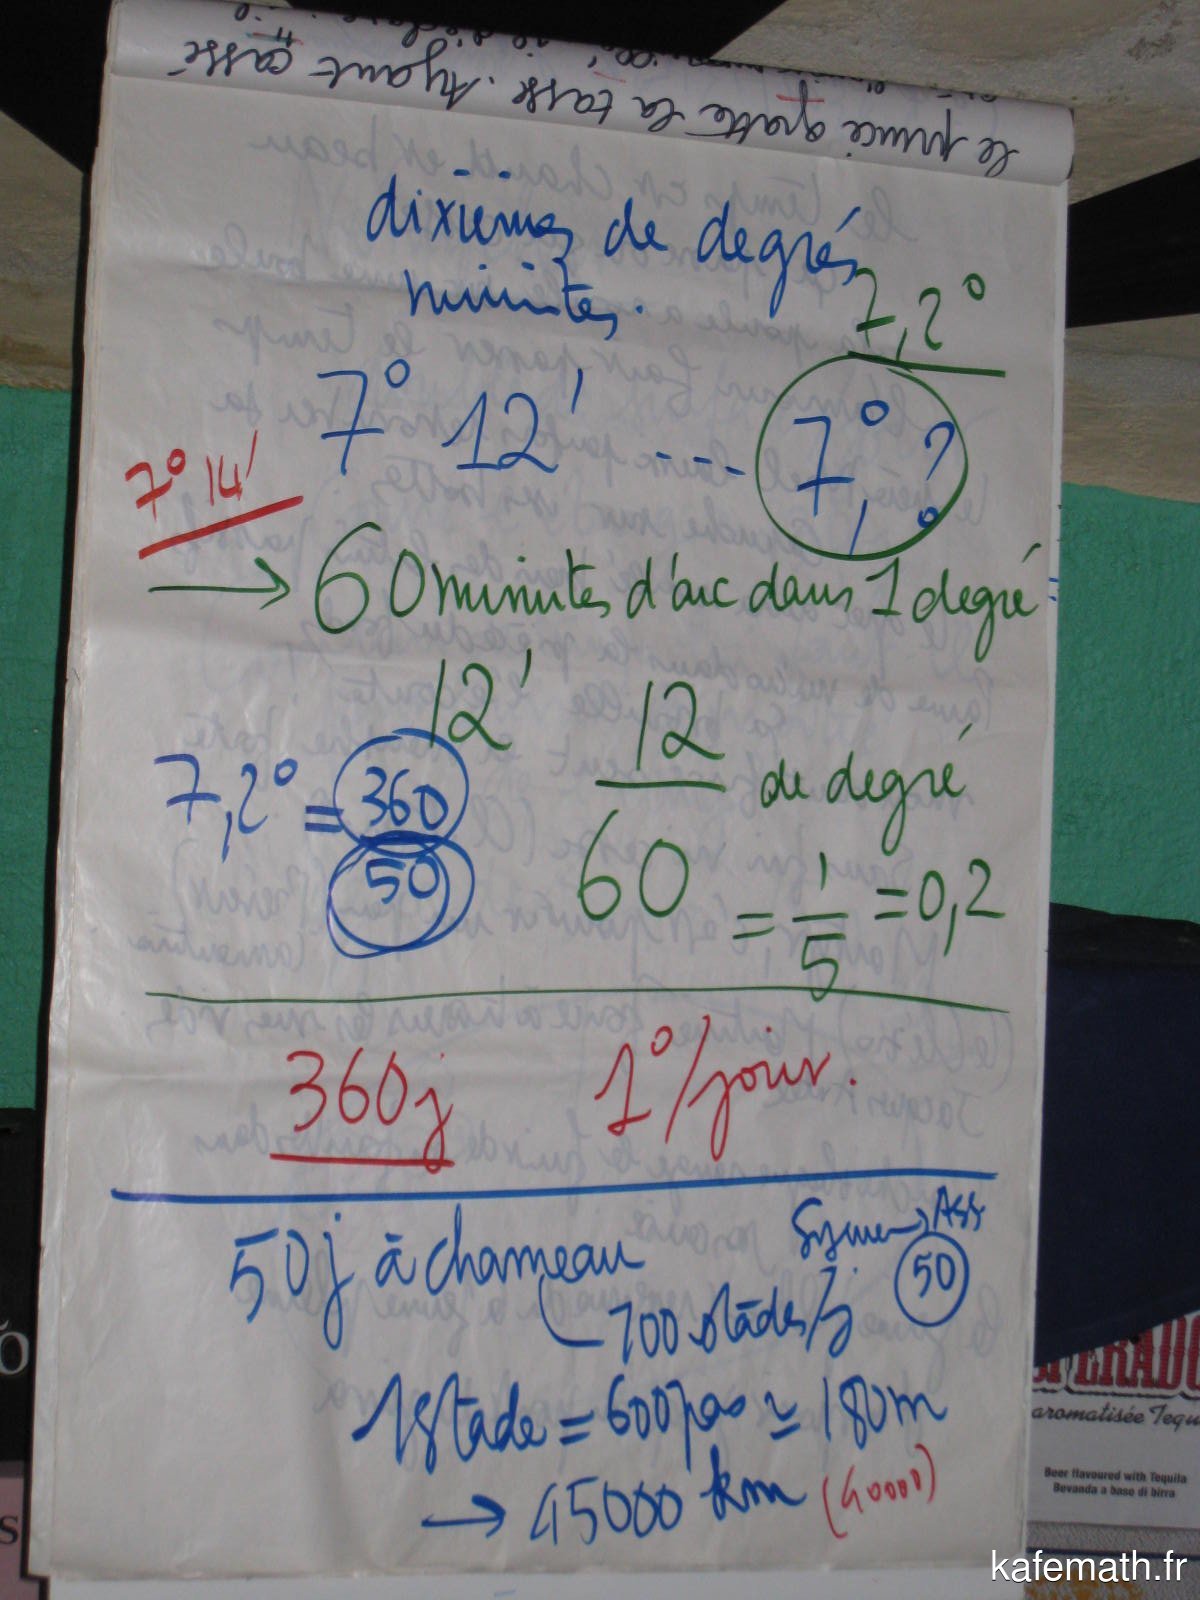 le prince gratte la tasse. Ayant cassé
dixièmes de degrés
minutes.
7,2°
7° 12' ---- 7,?°
7° 14'
→ 60 minutes d'arc dans 1 degré
12'
12/60 de degré
7,2° = 360/50
= 1/5 = 0,2
360j 1°/jour.
50j à chameau
Syène → Ass
50
700 stades/j
1 stade = 600 pas ≃ 180m
→ 45000 km (40000)
PERADO
aromatisée Tequ
Beer flavoured with Tequila
Bevanda a base di birra
kafemath.fr